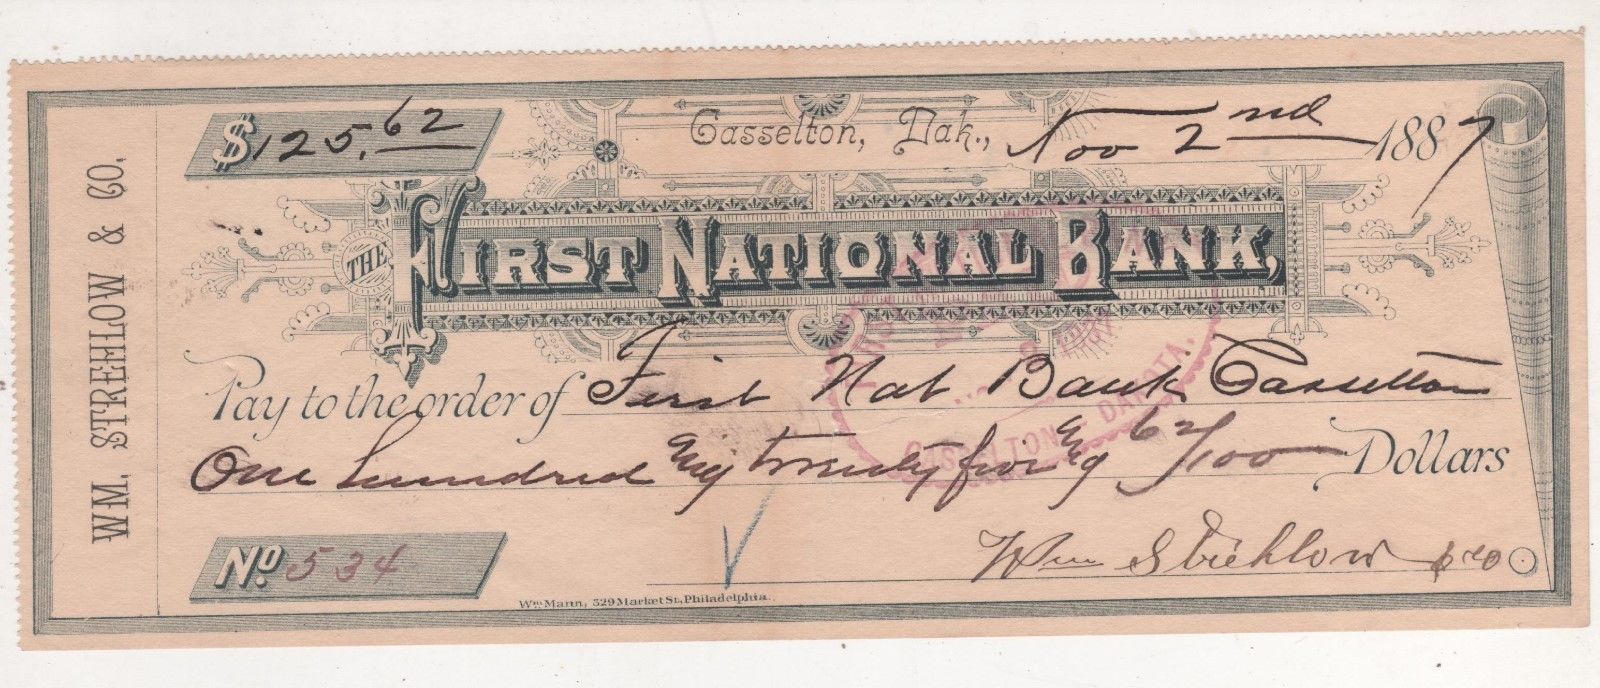 WM. STREHLOW & CO.
$125.62
Casselton, Dak., Nov 2nd 1887
THE FIRST NATIONAL BANK,
Pay to the order of First Nat Bank Casselton
One hundred & twenty five & 62/100 Dollars
Wm Strehlow & Co
No. 534
Wm Mann, 529 Market St., Philadelphia.
CASSELTON, DAKOTA.